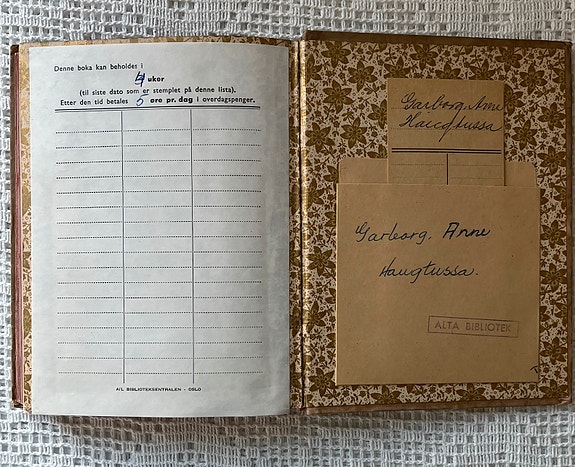 Denne boka kan beholdes i
4 uker
(til siste dato som er stemplet på denne lista).
Etter den tid betales 5 øre pr. dag i overdagspenger.
A/L BIBLIOTEKSENTRALEN - OSLO
Garborg, Arne
Haugtussa
Garborg, Arne
Haugtussa.
ALTA BIBLIOTEK